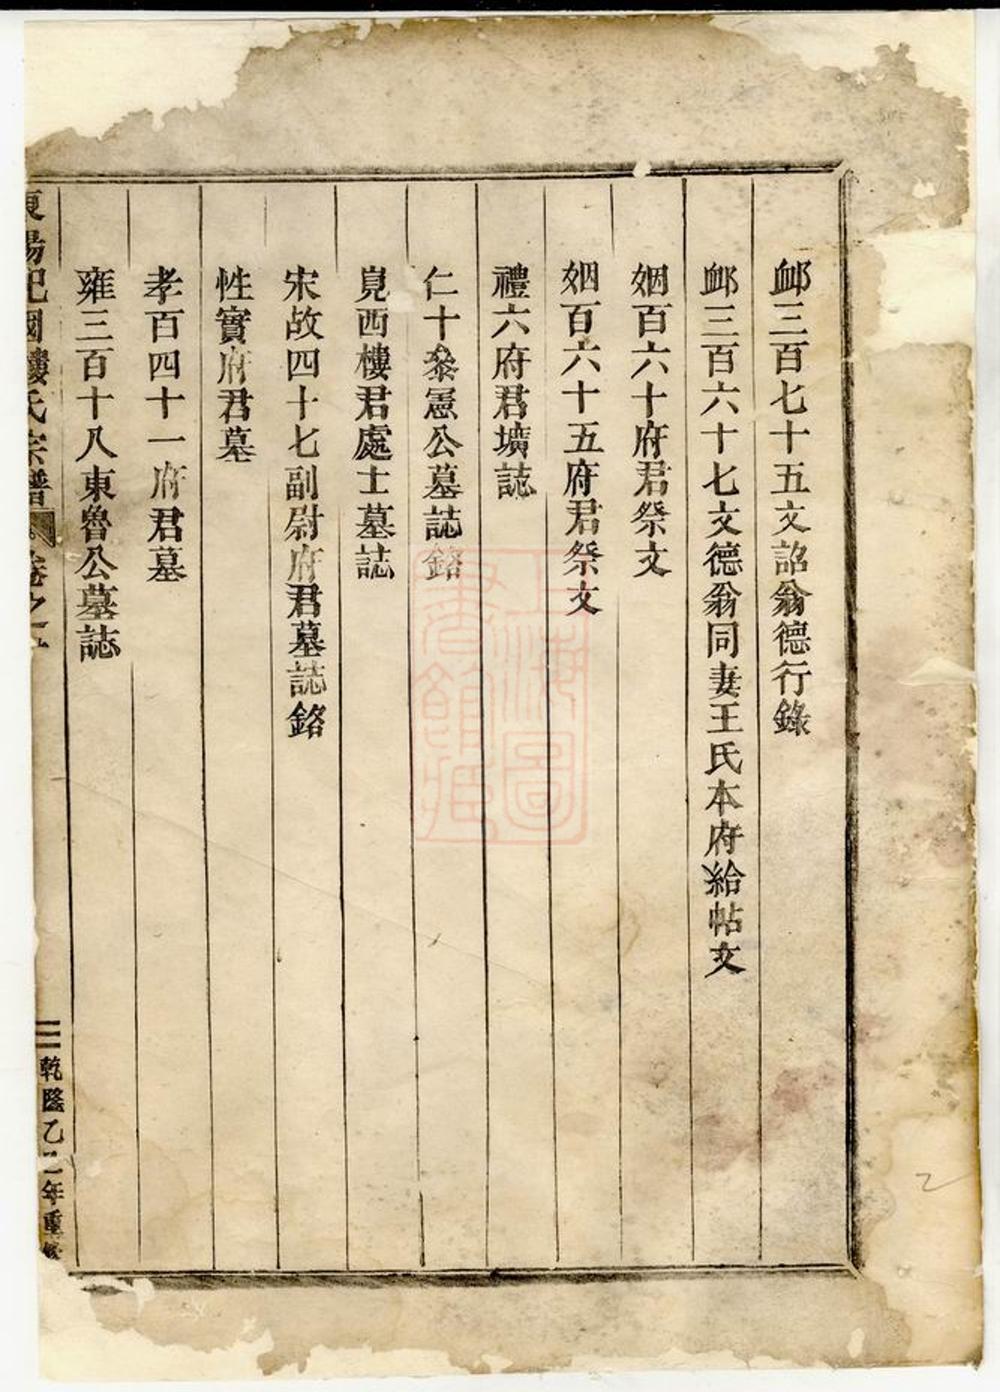 卹三百七十五文詔翁德行錄
卹三百六十七文德翁同妻王氏本府給帖文
姻百六十府君祭文
姻百六十五府君祭文
禮六府君壙誌
仁十叅憲公墓誌銘
見西樓君處士墓誌
宋故四十七副尉府君墓誌銘
性實府君墓
孝百四十一府君墓
雍三百十八東魯公墓誌
東陽杞國樓氏宗譜 卷之 三 乾隆乙 年重修
上海圖書館藏